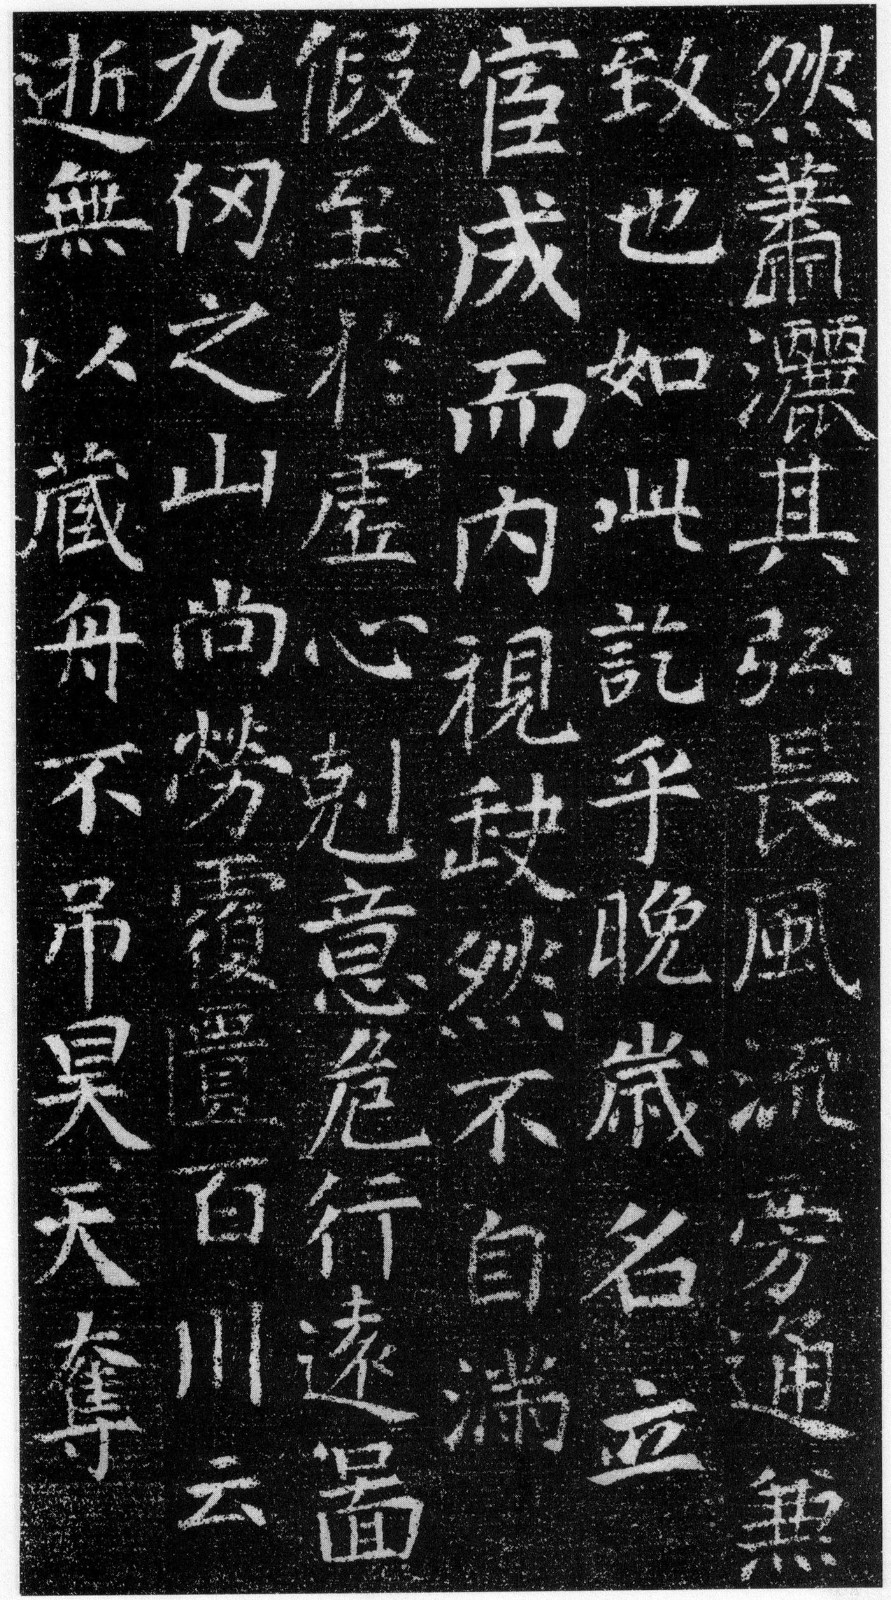 然蕭灑其弘長風流旁通兼
致也如此訖乎晚歲名立
宦成而內視缺然不自滿
假至於虛心剋意危行遠圖
九仞之山尚勞覆匱百川云
逝無以藏舟不吊昊天奪